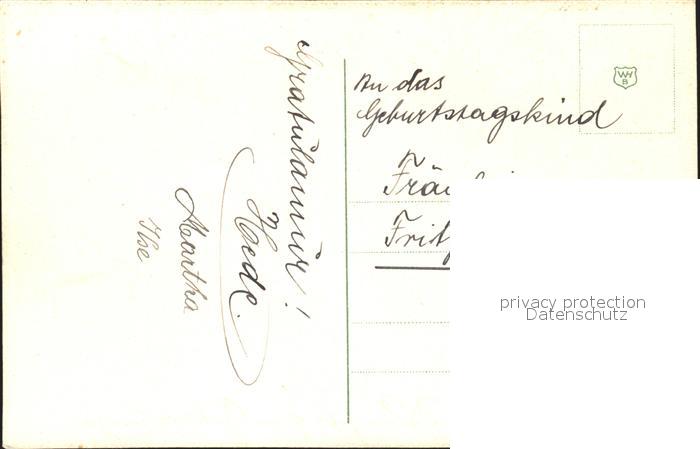 Gratulamur!
Hede.
Martha
Ilse
An das
Geburtstagskind
Fräu
Fritz
WH
B
privacy protection
Datenschutz